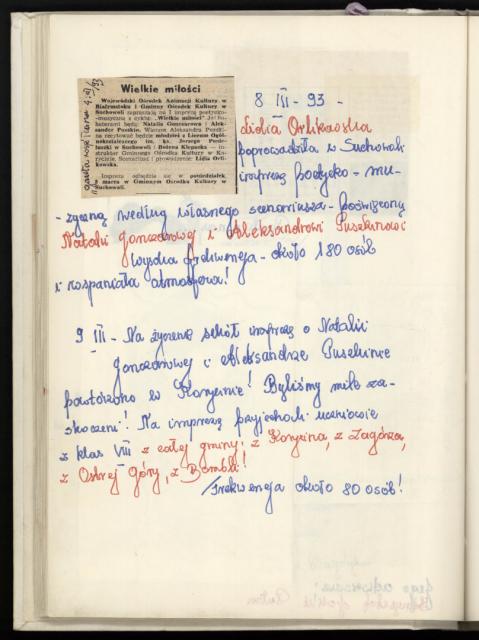 Wielkie miłości
Wojewódzki Ośrodek Animacji Kultury w
Białymstoku i Gminny Ośrodek Kultury w
Suchowoli zapraszają na I imprezę poetycko-
-muzyczną z cyklu: „Wielkie miłości". Jej bo-
haterami będą: Natalia Gonczarowa i Alek-
sander Puszkin. Wiersze Aleksandra Puszki-
na recytować będzie młodzież z Liceum Ogól-
nokształcącego im. ks. Jerzego Popie-
łuszki w Suchowoli i Bożena Klepacka — in-
struktor Gminnego Ośrodka Kultury w Ko-
rycinie. Scenariusz i prowadzenie: Lidia Orli-
kowska.
Impreza odbędzie się w poniedziałek,
marca w Gminnym Ośrodku Kultury w
Suchowoli.
8 III - 93 -
Lidia Orlikowska
poprowadziła w Suchowoli
imprezę poetycko - mu-
- zyczną według własnego scenariusza - poświęconą
Natalii Gonczarowej i Aleksandrowi Puszkinowi
Wysoka frekwencja - około 180 osób
i wspaniała atmosfera!
9 III - Na życzenie szkół imprezę o Natalii
Gonczarowej i Aleksandrze Puszkinie
powtórzono w Korycinie! Byliśmy mile za-
skoczeni! Na imprezę przyjechali uczniowie
z klas VIII z całej gminy: z Korycina, z Zagórza,
z Ostrej Góry, z Bombli!
Frekwencja około 80 osób!